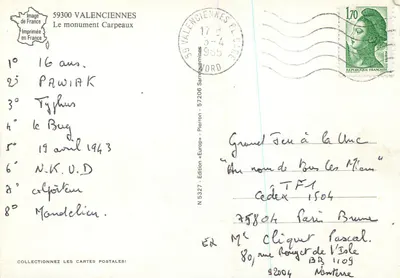 Image
de France
Imprimée
en France
59300 VALENCIENNES
Le monument Carpeaux
59 VALENCIENNES
17 H
-4
1985
NORD
1,70
REPUBLIQUE FRANÇAISE
1° 16 ans.
2° PAWIAK
3° Typhus
4° le Bug
5° 19 avril 1943
6° N.K.V.D
7° colporteur
8° Mandelieu.
N 5327 - Edition «Europ» - Pierron - 57206 Sarreguemines
Grand Jeu à la Une
"Au nom de tous les Miens"
TF1
Cedex 1504
75804 Paris Brune
Cliquet Pascal.
80, rue Rouget de l'Isle
BP 1109
92004 Nanterre
COLLECTIONNEZ LES CARTES POSTALES!